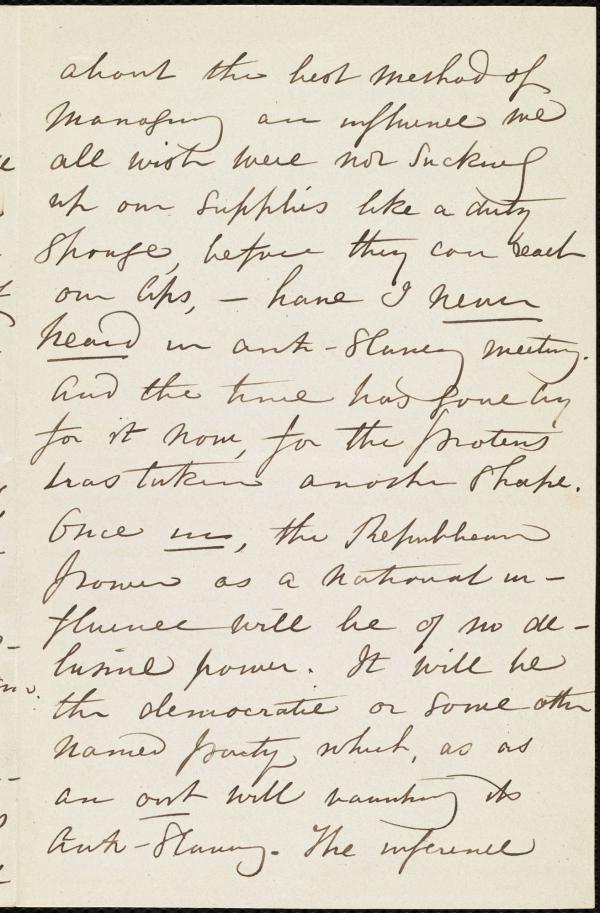 about the best method of
managing an influence we
all wish were not sucking
up our supplies like a dirty
sponge, before they can reach
our lips, – have I never
heard in anti-slavery meeting.
And the time has gone by
for it now, for the Proteus
has taken another shape.
Once in, the Republican
power as a national in-
fluence will be of no de-
lusive power. It will be
the democratic or some other
named party which, as
an out will vaunting its
Anti-Slavery. The inference